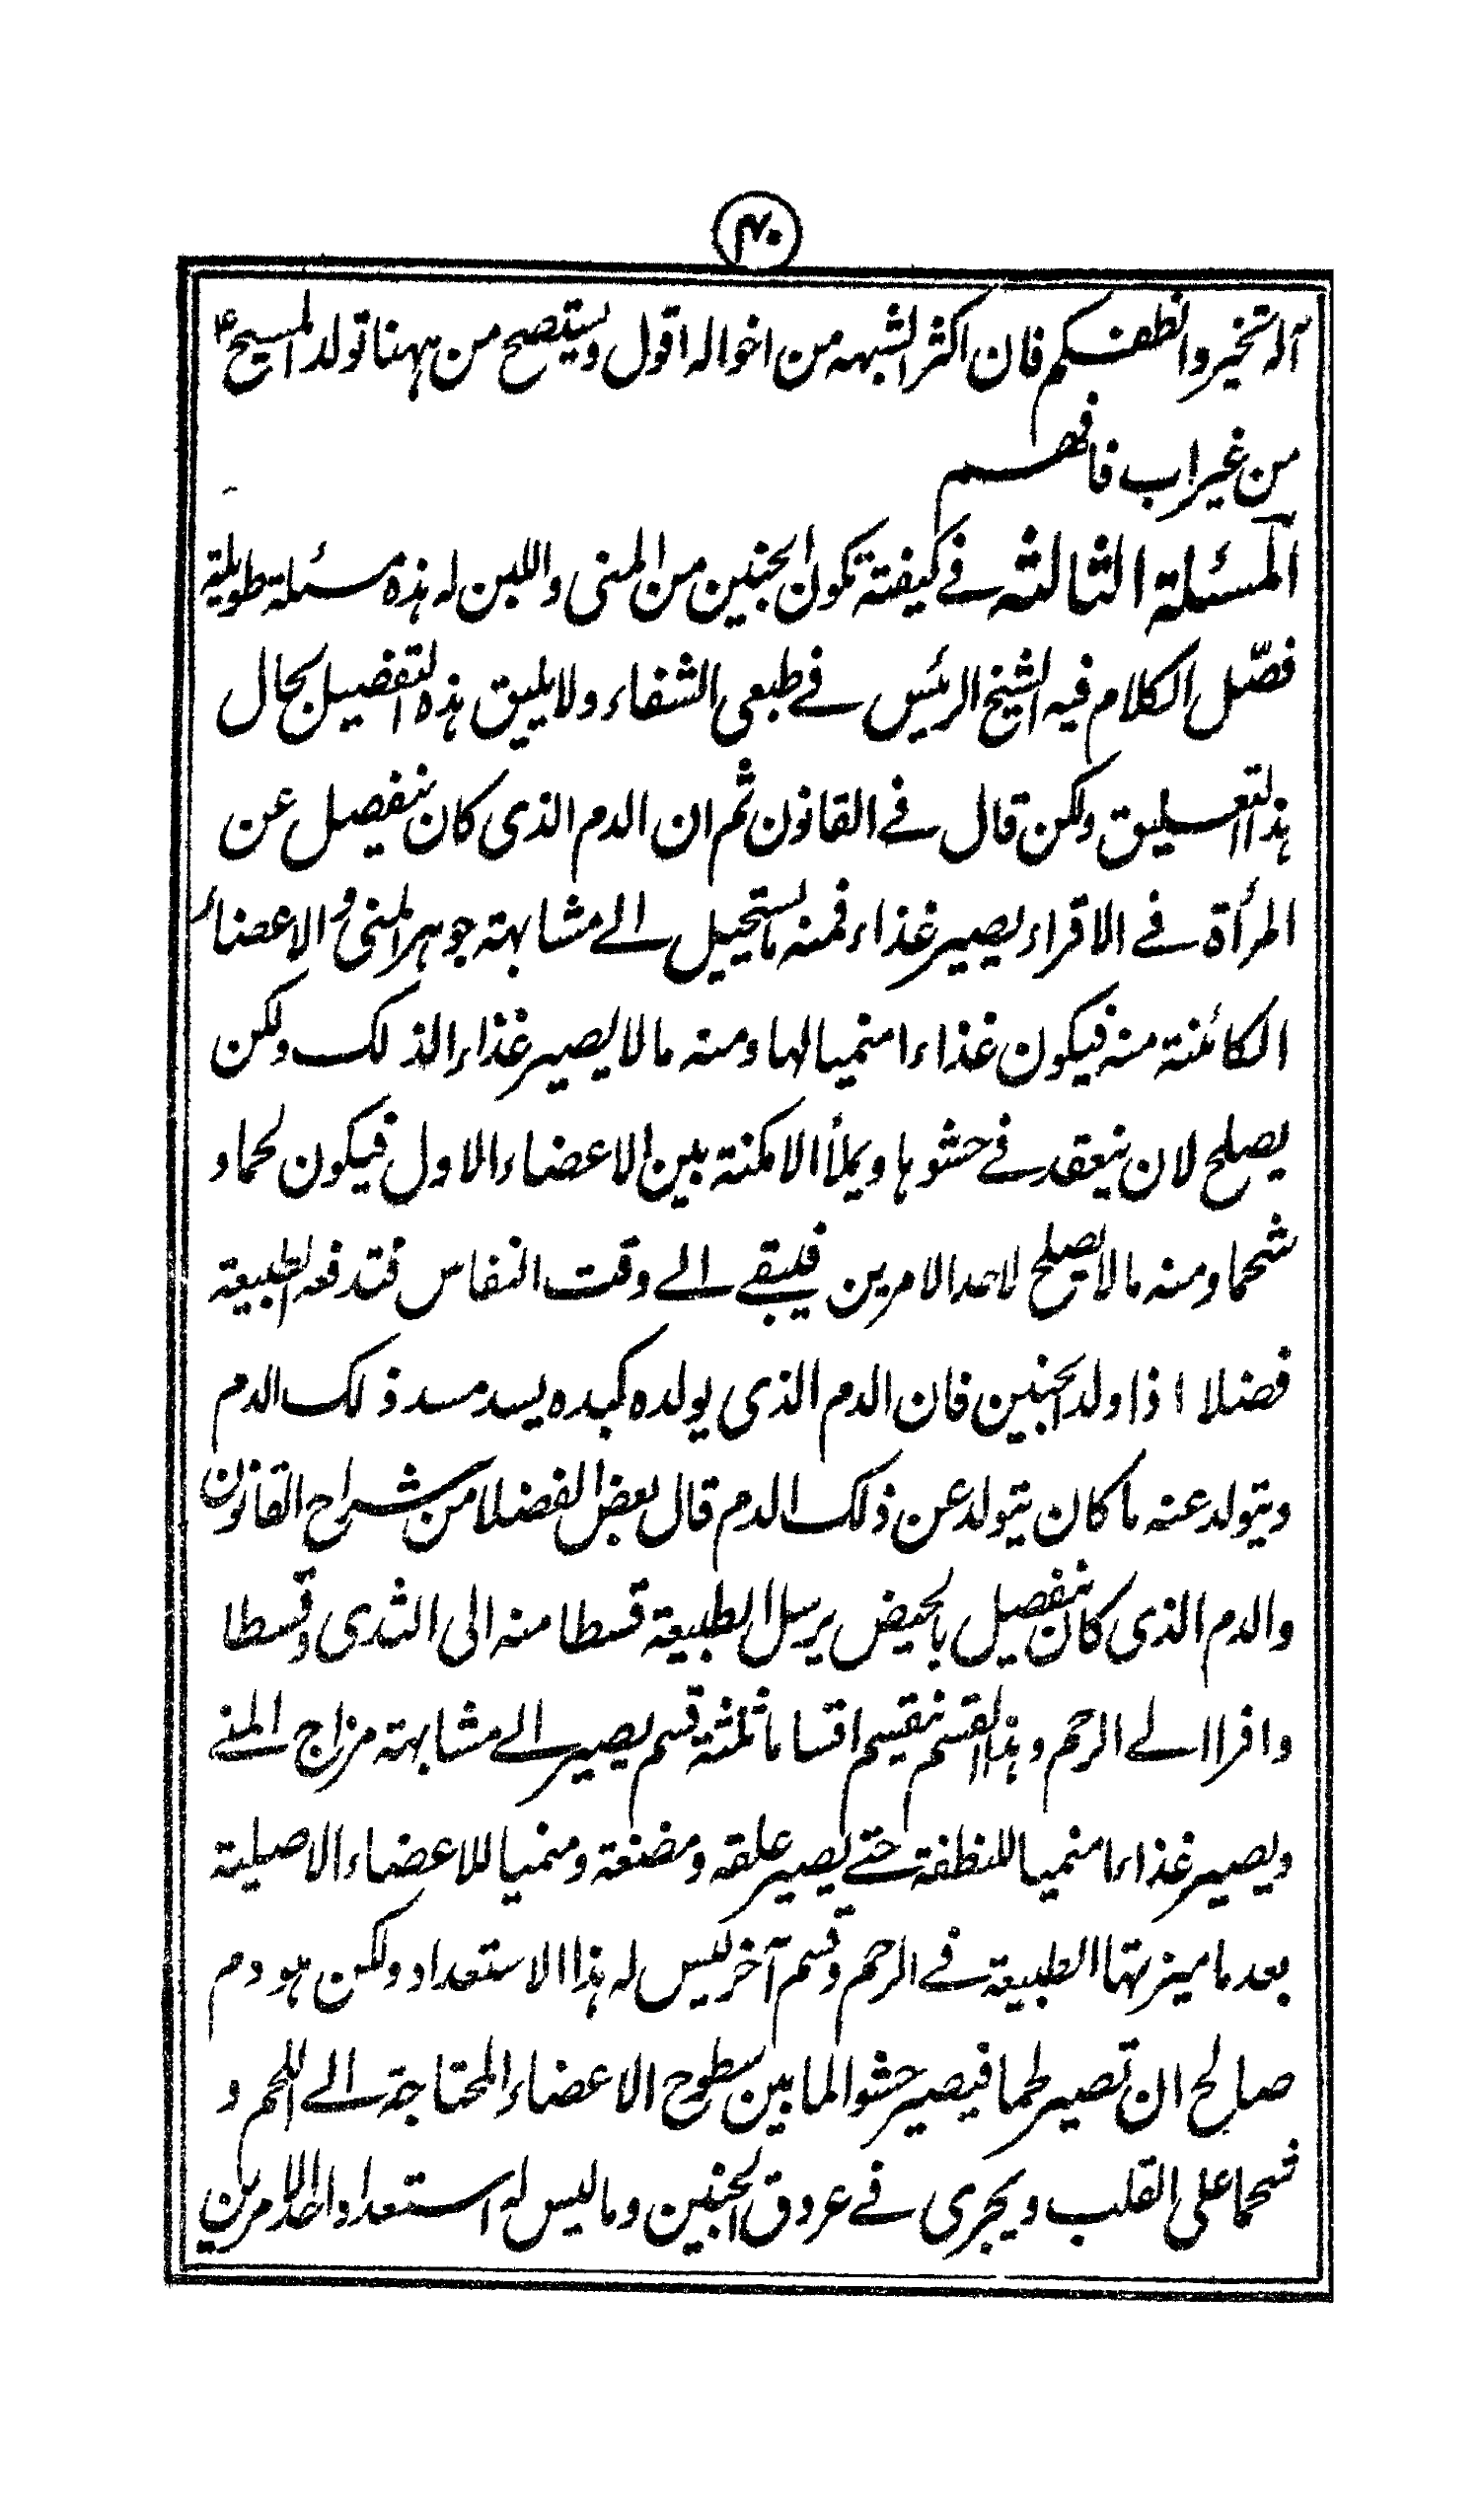 ۴۰
آله تخيروا لنطفكم فان اكثر الشبهه من اخواله اقول ويستصح من ههنا تولد المسيح ع
من غير اب فافهم
المسئلة الثالثه في كيفته تكون الجنين من المنى واللبن له هذه مسئلة طويلة
فصّل الكلام فيه الشيخ الرئيس في طبعى الشفاء ولا يليق هذه التفصيل بحال
هذا التعليق ولكن قال في القانون ثم ان الدم الذى كان ينفصل عن
المرأة في الاقراء يصير غذاء فمنه ما يستحيل الى مشابهته جوهر المنى و الاعضاء
الكائنة منه فيكون غذاء امنميا لها ومنه ما لا يصير غذاء الذلك ولكن
يصلح لان ينعقد في حشوها ويملأ الامكنة بين الاعضاء الاول فيكون لحما و
شحما ومنه ما لا يصلح لاحد الامرين فيبقى الى وقت النفاس فتدفعه الطبيعة
فضلا اذا ولد الجنين فان الدم الذى يولده كبده يسد مسد ذلك الدم
ويتولد عنه ما كان يتولد عن ذلك الدم قال بعض الفضلا من شراح القانون
والدم الذى كان ينفصل بالحيض يرسل الطبيعة قسطا منه الى الثدى وقسطا
وافرا الى الرحم وهذا القسم ينقسم اقساما ثلثة قسم يصير الى مشابهته مزاج المنى
ويصير غذاءا منميا للنطفة حتى يصير علقه ومضغة ومنميا للاعضاء الاصلية
بعد ما ميزتها الطبيعة في الرحم وقسم آخر ليس له هذا الاستعداد ولكن هو دم
صالح ان تصير لحما فيصير حشوا لما بين سطوح الاعضاء المحتاجة الى اللحم و
شحما على القلب ويجرى في عروق الجنين وما ليس له استعداد احد الامرين